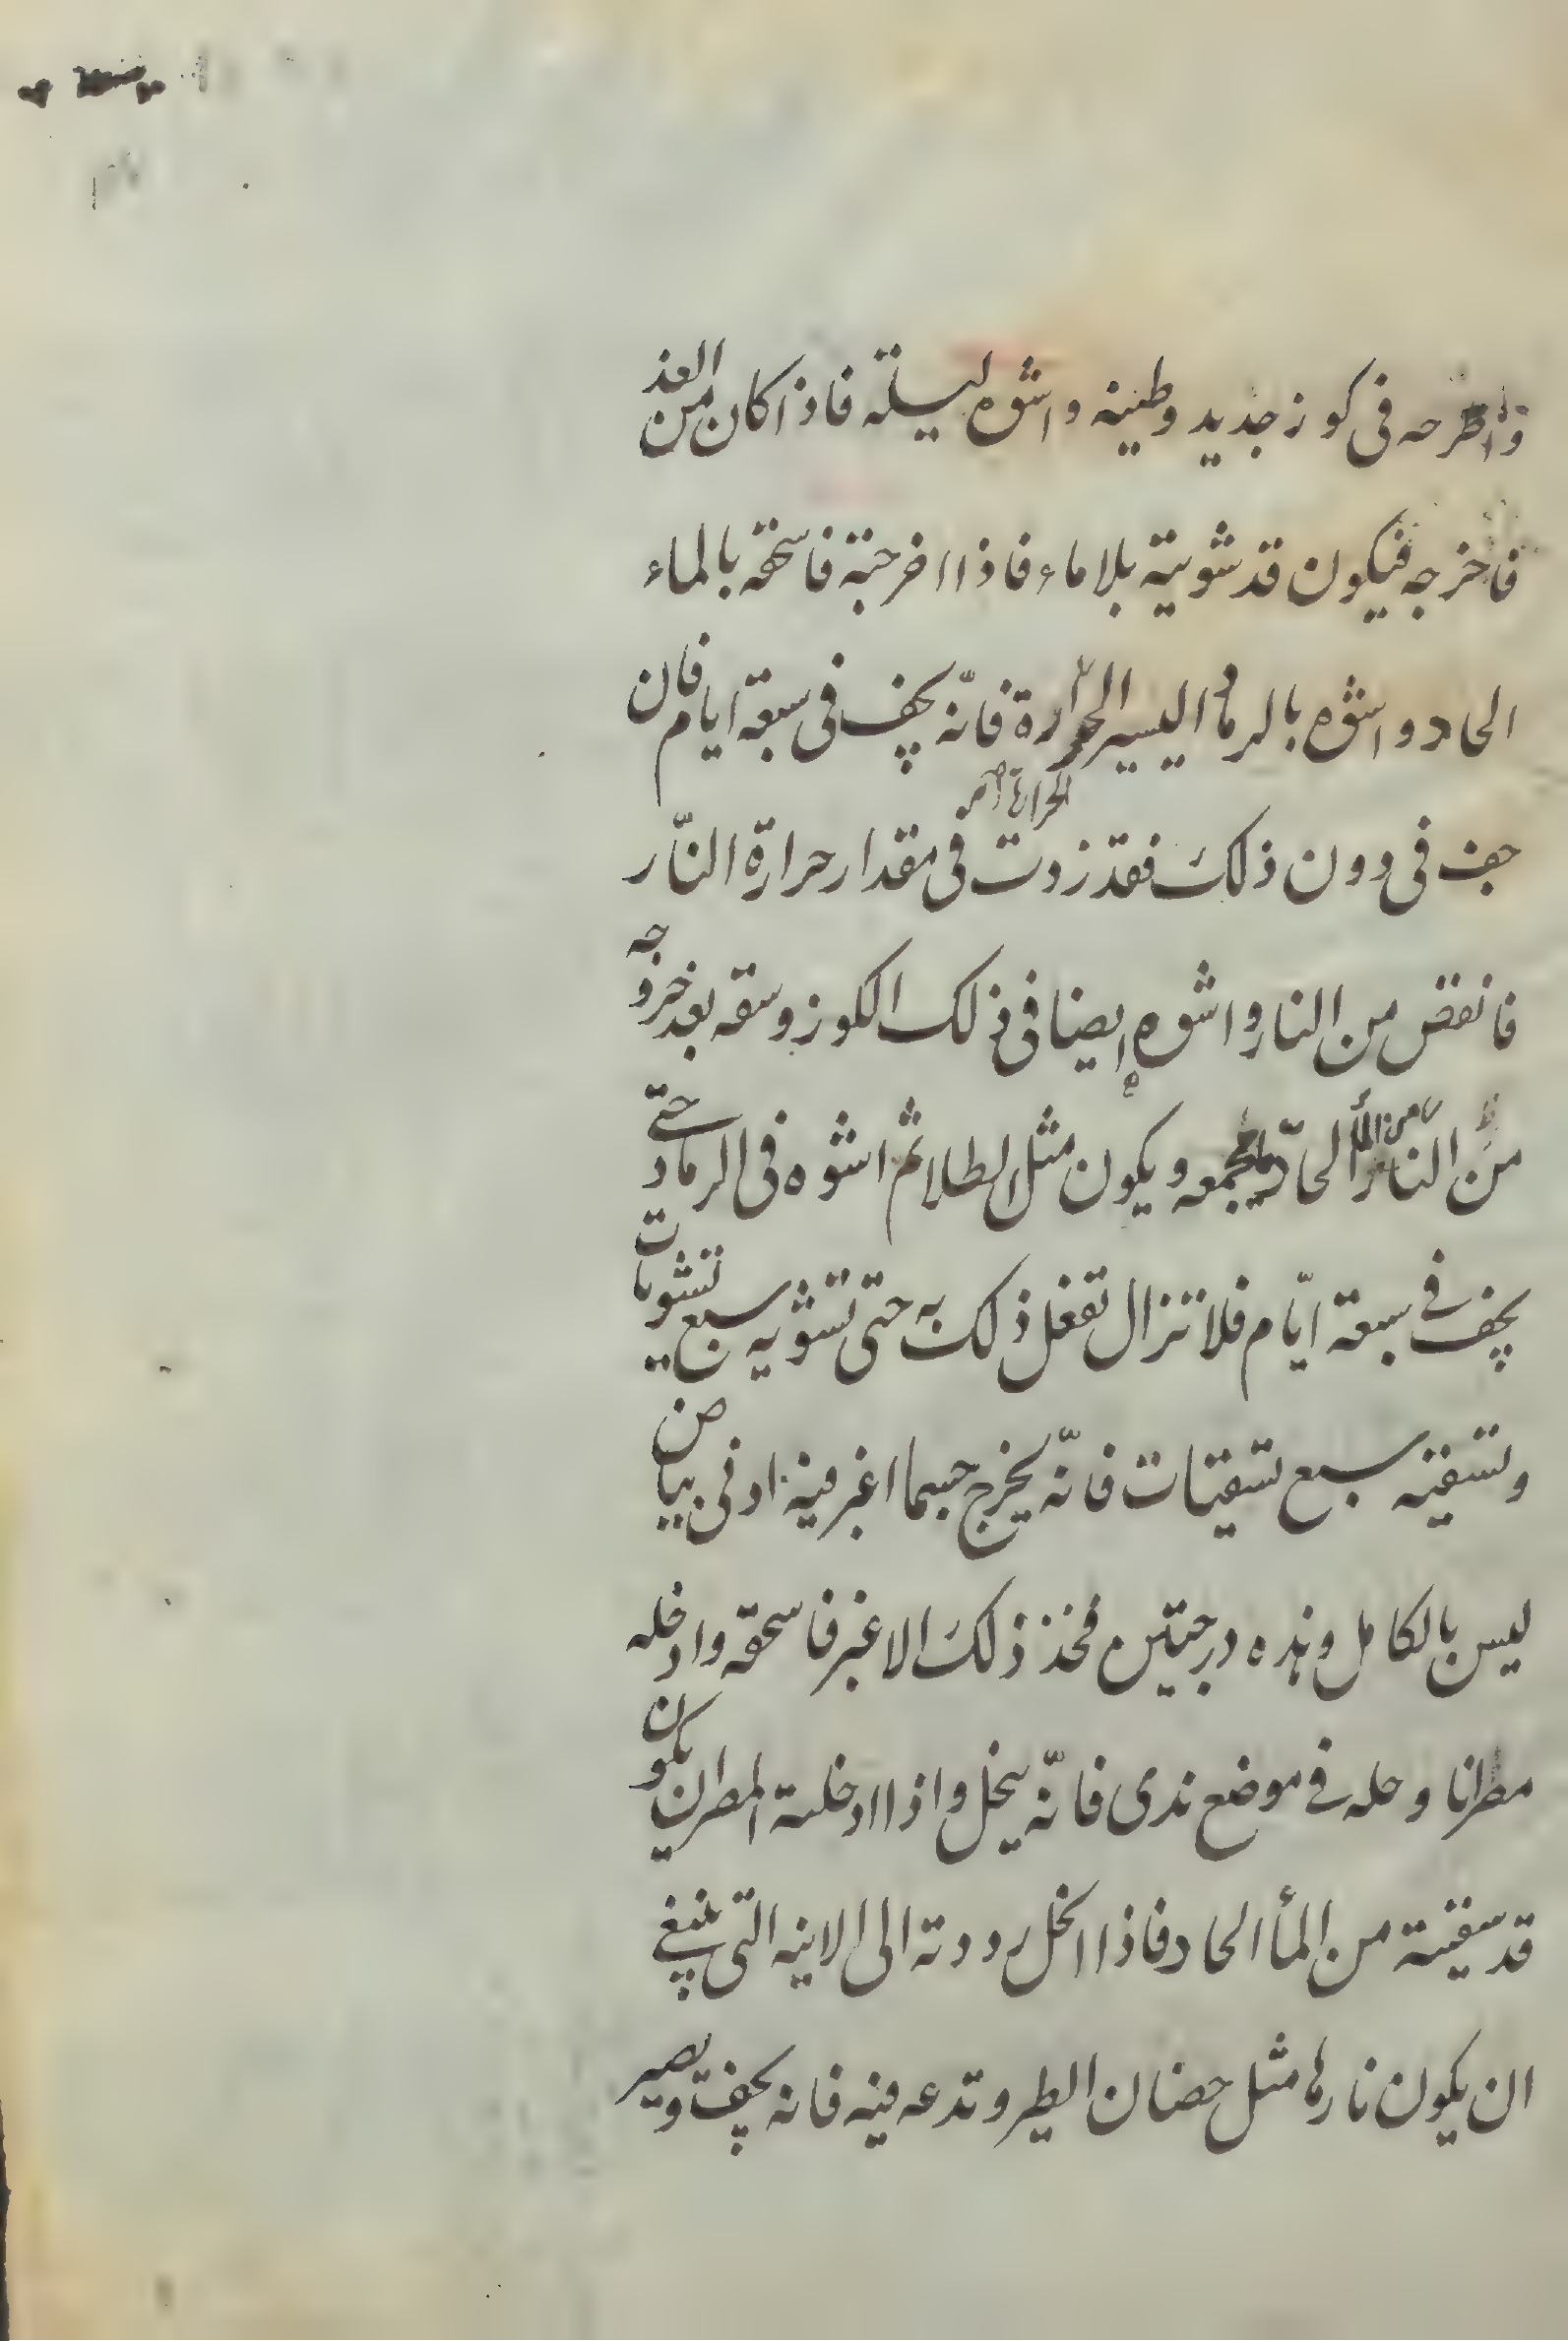 واطرحه فى كوز جديد وطينه واشوه ليلته فاذا كان من الغد
فاخرجه فيكون قد شويته بلا ماء فاذا اخرجته فاسحقه بالماء
الحاد واشوه بالرماد اليسير الحرارة فانّه يجف فى سبعة ايام فان
جف فى دون ذلك فقد زدت فى مقدار حرارة النّار
فانقض من النار واشوه ايضا فى ذلك الكوز وسقه بعد خروجه
من النّار من الماء الحادّ ويكون مثل الطلا ثم اشوه فى الرماد حتى
يجف فى سبعة ايّام فلا تزال تفعل ذلك به حتى تشويه سبع تشويات
وتسقيه سبع تسقيات فانّه يخرج جسما اغبر فيه ادنى بياض
ليس بالكامل وهذه درجتين فخذ ذلك الاغبر فاسحقه وادخله
مطرانا وحله فى موضع ندى فانّه ينحل واذا ادخلته المطران يكون
قد سقيته من المأ الحاد فاذا انحل رددته الى الانيه التى ينبغى
ان يكون نارها مثل حضان الطير وتدعه فيه فانه يجف ويصير